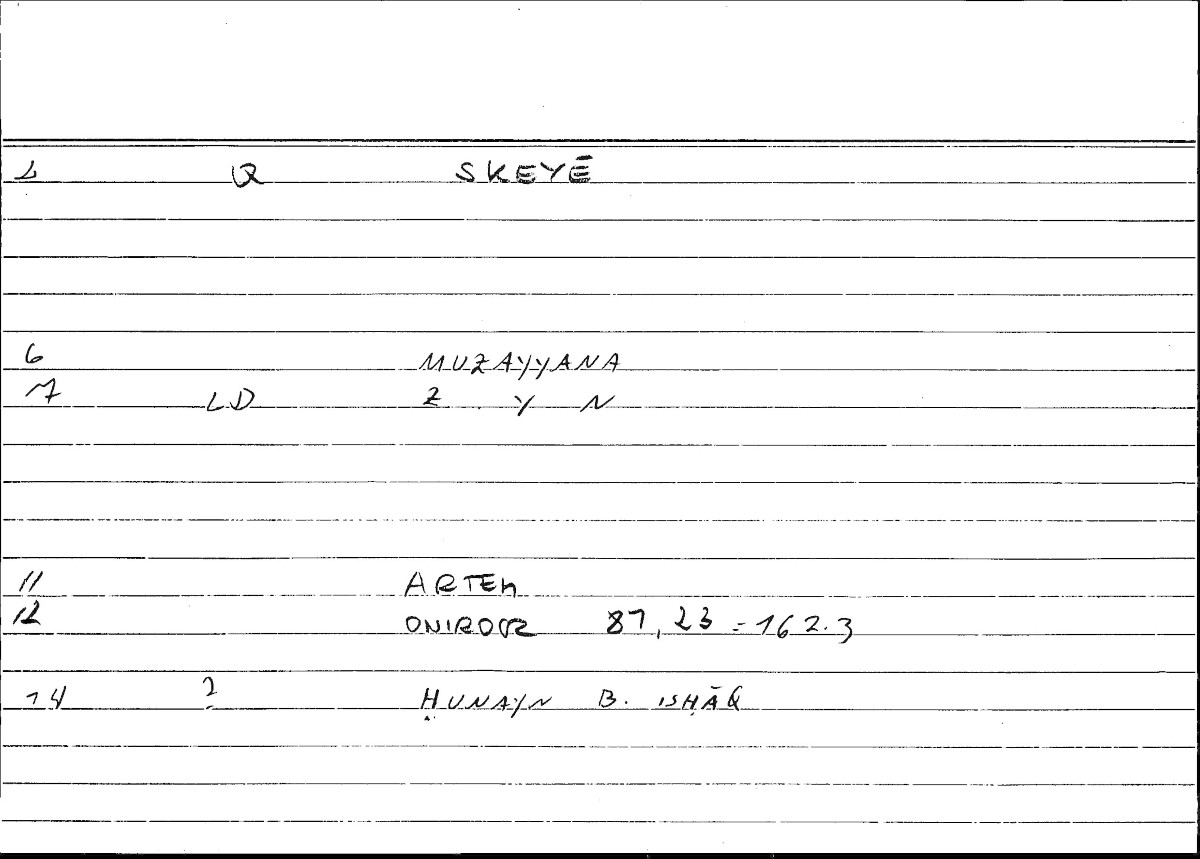 1 Q SKEYĒ
6 MUZAYYANA
7 LD Z Y N
11 ARTEM
12 ONIROCR 87,23 = 162.3
14 ? ḤUNAYN B. ISḤĀQ